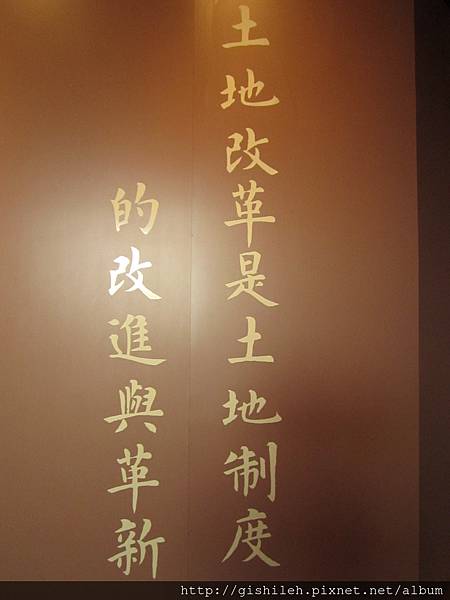 土地改革是土地制度
的改進與革新
http://gishileh.pixnet.net/album